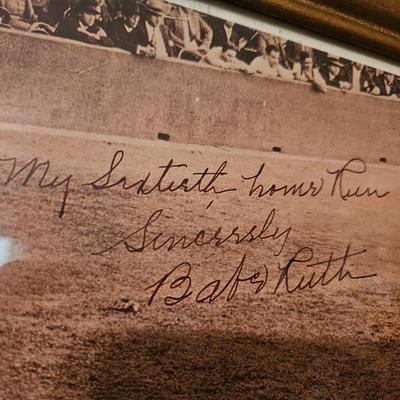 My Sixtieth home Run
Sincerely
Babe Ruth